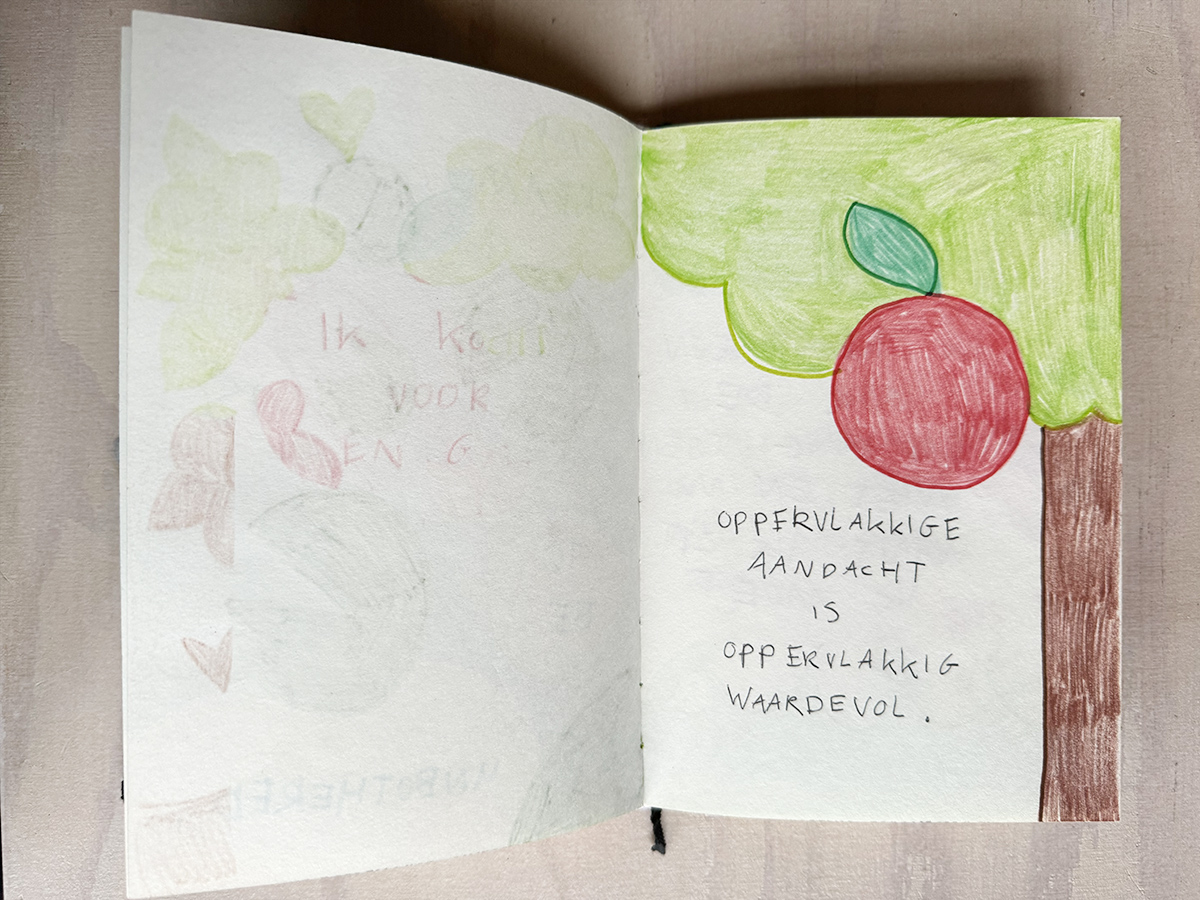 Ik KOCHT
VOOR
OPPERVLAKKIGE
AANDACHT
IS
OPPERVLAKKIG
WAARDEVOL.